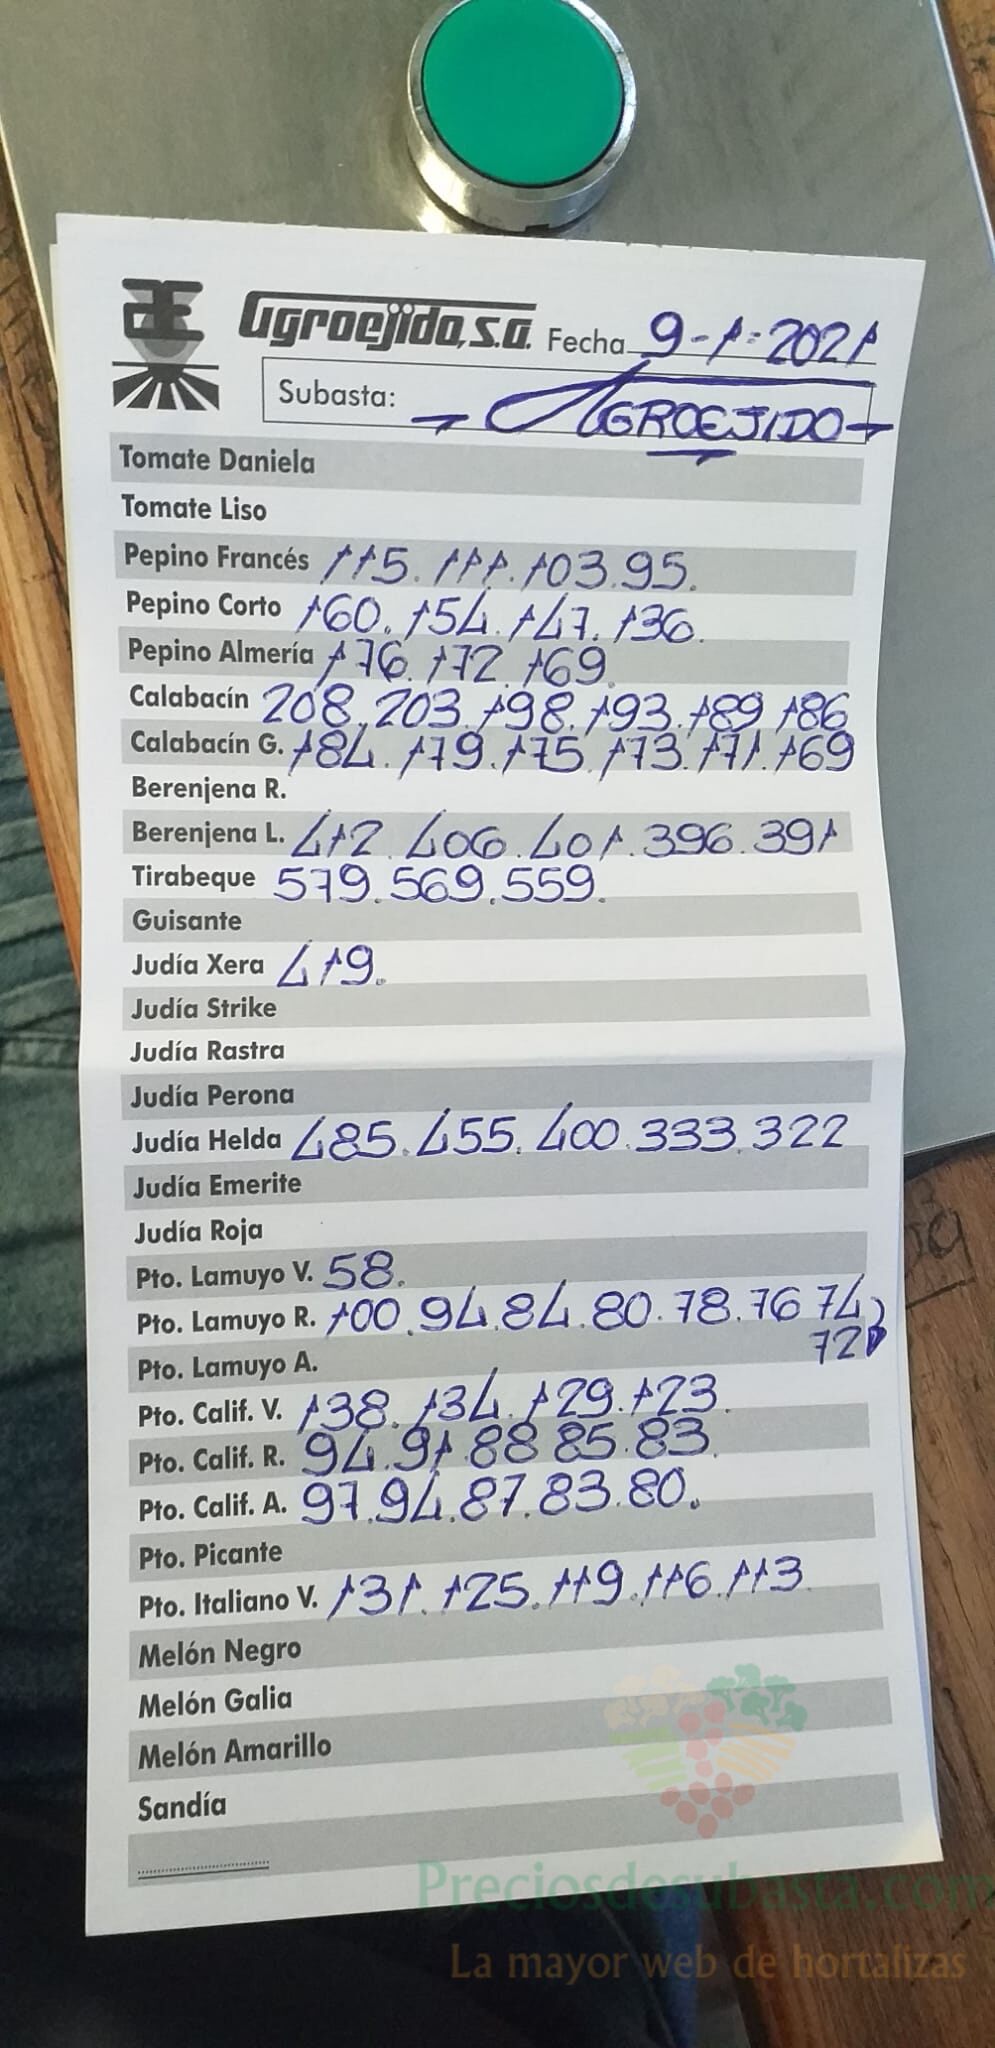 Agroejido, S.A. Fecha 9-1-2021
Subasta: AGROEJIDO
Tomate Daniela
Tomate Liso
Pepino Francés 115. 111. 103. 95.
Pepino Corto 160. 154. 147. 136.
Pepino Almería 176. 172. 169.
Calabacín 208. 203. 198. 193. 189 186
Calabacín G. 184. 179. 175. 173. 171. 169
Berenjena R.
Berenjena L. 412. 406. 401. 396. 391
Tirabeque 579. 569. 559.
Guisante
Judía Xera 419.
Judía Strike
Judía Rastra
Judía Perona
Judía Helda 485. 455. 400. 333. 322
Judía Emerite
Judía Roja
Pto. Lamuyo V. 58.
Pto. Lamuyo R. 100. 94. 84. 80. 78. 76 74
72
Pto. Lamuyo A.
Pto. Calif. V. 138. 134. 129. 123.
Pto. Calif. R. 94. 91. 88 85. 83.
Pto. Calif. A. 97. 94. 87. 83. 80.
Pto. Picante
Pto. Italiano V. 131. 125. 119. 116. 113.
Melón Negro
Melón Galia
Melón Amarillo
Sandía
Preciosdesubasta.com
La mayor web de hortalizas